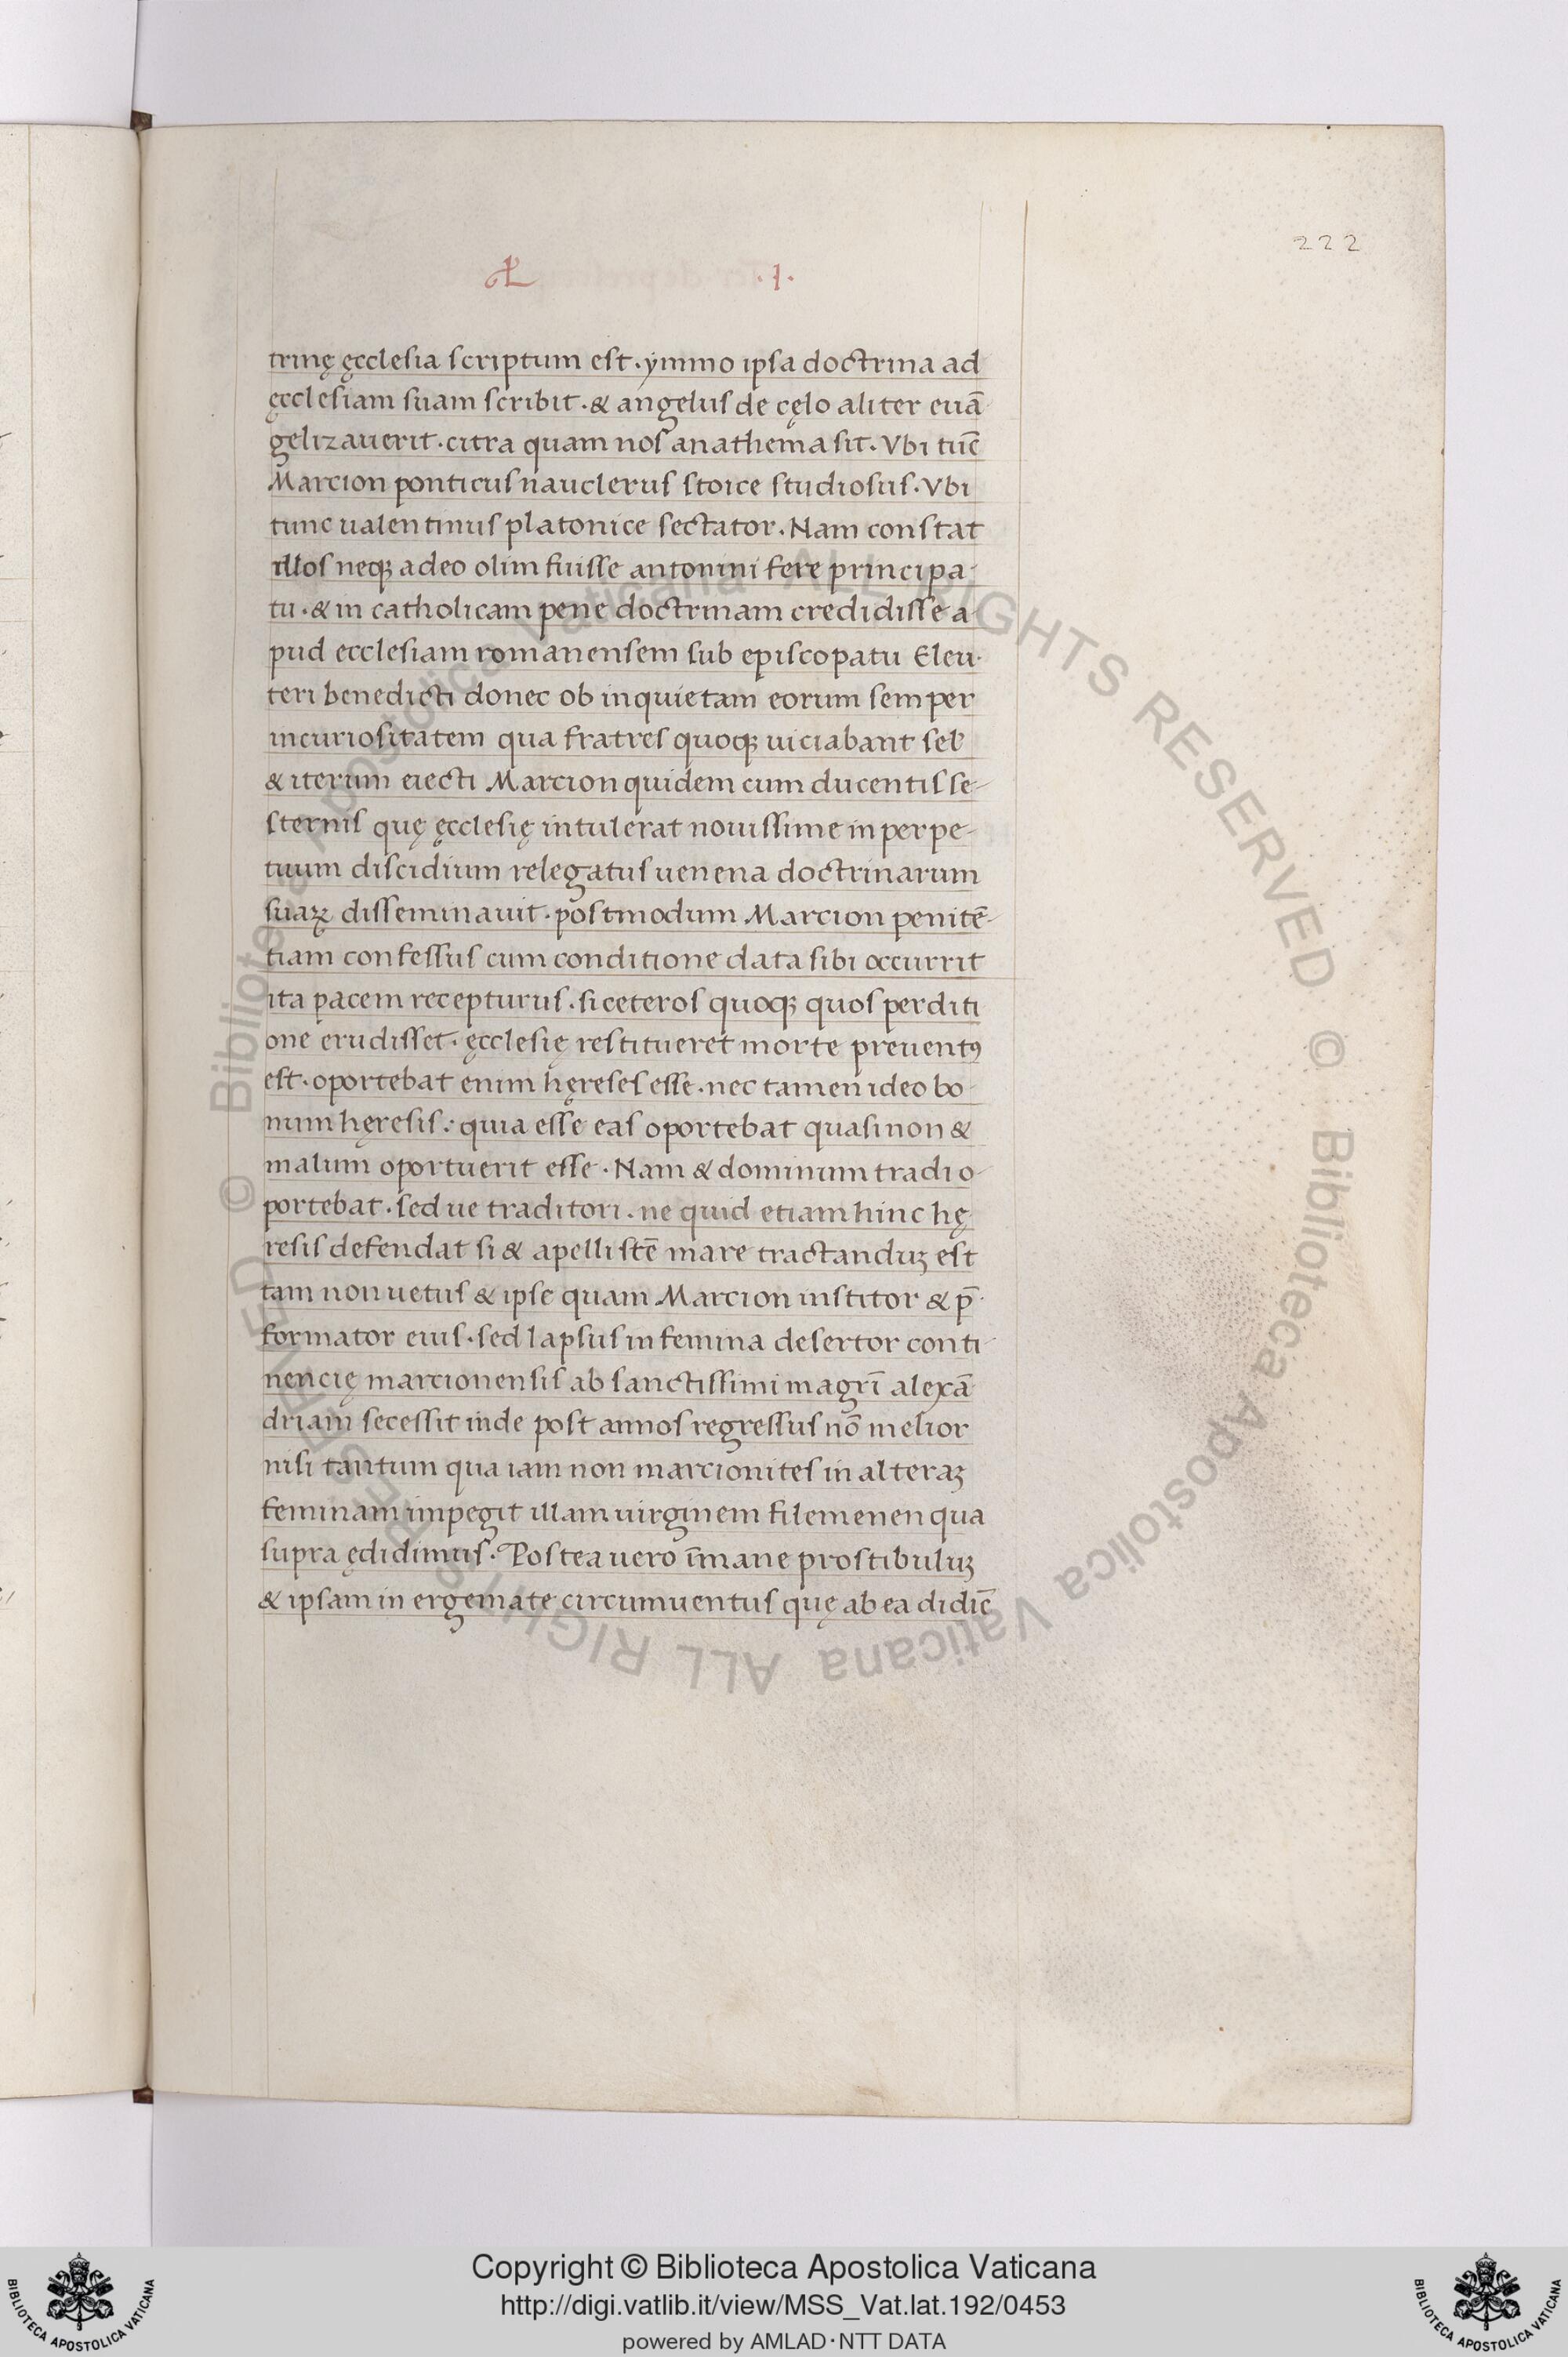 222
.1.
trinę ęcclesia scriptum est. ymmo ipsa doctrina ad
ęcclesiam suam scribit. & angelus de cęlo aliter euā
gelizauerit. citra quam nos anathema sit. Vbi tūc
Marcion ponticus nauclerus stoice studiosus. Vbi
tunc ualentinus platonice sectator. Nam constat
illos neqꝫ adeo olim fuisse antonini fere principa-
tu. & in catholicam pene doctrinam credidisse a-
pud ecclesiam romanensem sub episcopatu Eleu-
teri benedicti donec ob inquietam eorum semper
incuriositatem qua fratres quoqꝫ uiciabant seƀ
& iterum eiecti Marcion quidem cum ducentis se-
sternis quę ęcclesię intulerat nouissime in perpe-
tuum discidium relegatus uenena doctrinarum
suaꝝ disseminauit. postmodum Marcion penitē-
tiam confessus cum conditione data sibi occurrit
ita pacem recepturus. si ceteros quoqꝫ quos perditi
one erudisset. ęcclesię restitueret morte preuentꝰ
est. oportebat enim hęreses esse. nec tamen ideo bo-
num hęresis: quia esse eas oportebat quasi non &
malum oportuerit esse. Nam & dominum tradi o-
portebat. sed ue traditori. ne quid etiam hinc hę
resis defendat si & apelli stē mare tractanduꝫ est
tam non uetus & ipse quam Marcion institor & p̄-
formator eius. sed lapsus in femina desertor conti-
nencię marcionensis ab sanctissimi magrī alexā-
driam secessit inde post annos regressus nō melior
nisi tantum qua iam non marcionites in alteraꝫ
feminam impegit illam uirginem filemenen qua
supra ędidimus. Postea uero īmane prostibuluꝫ
& ipsam in ergemate circumuentus quę ab ea didic̄
© Biblioteca Apostolica Vaticana ALL RIGHTS RESERVED © Biblioteca Apostolica Vaticana ALL RIGHTS RESERVED
Copyright © Biblioteca Apostolica Vaticana
http://digi.vatlib.it/view/MSS_Vat.lat.192/0453
powered by AMLAD·NTT DATA
BIBLIOTECA APOSTOLICA VATICANA
BIBLIOTECA APOSTOLICA VATICANA